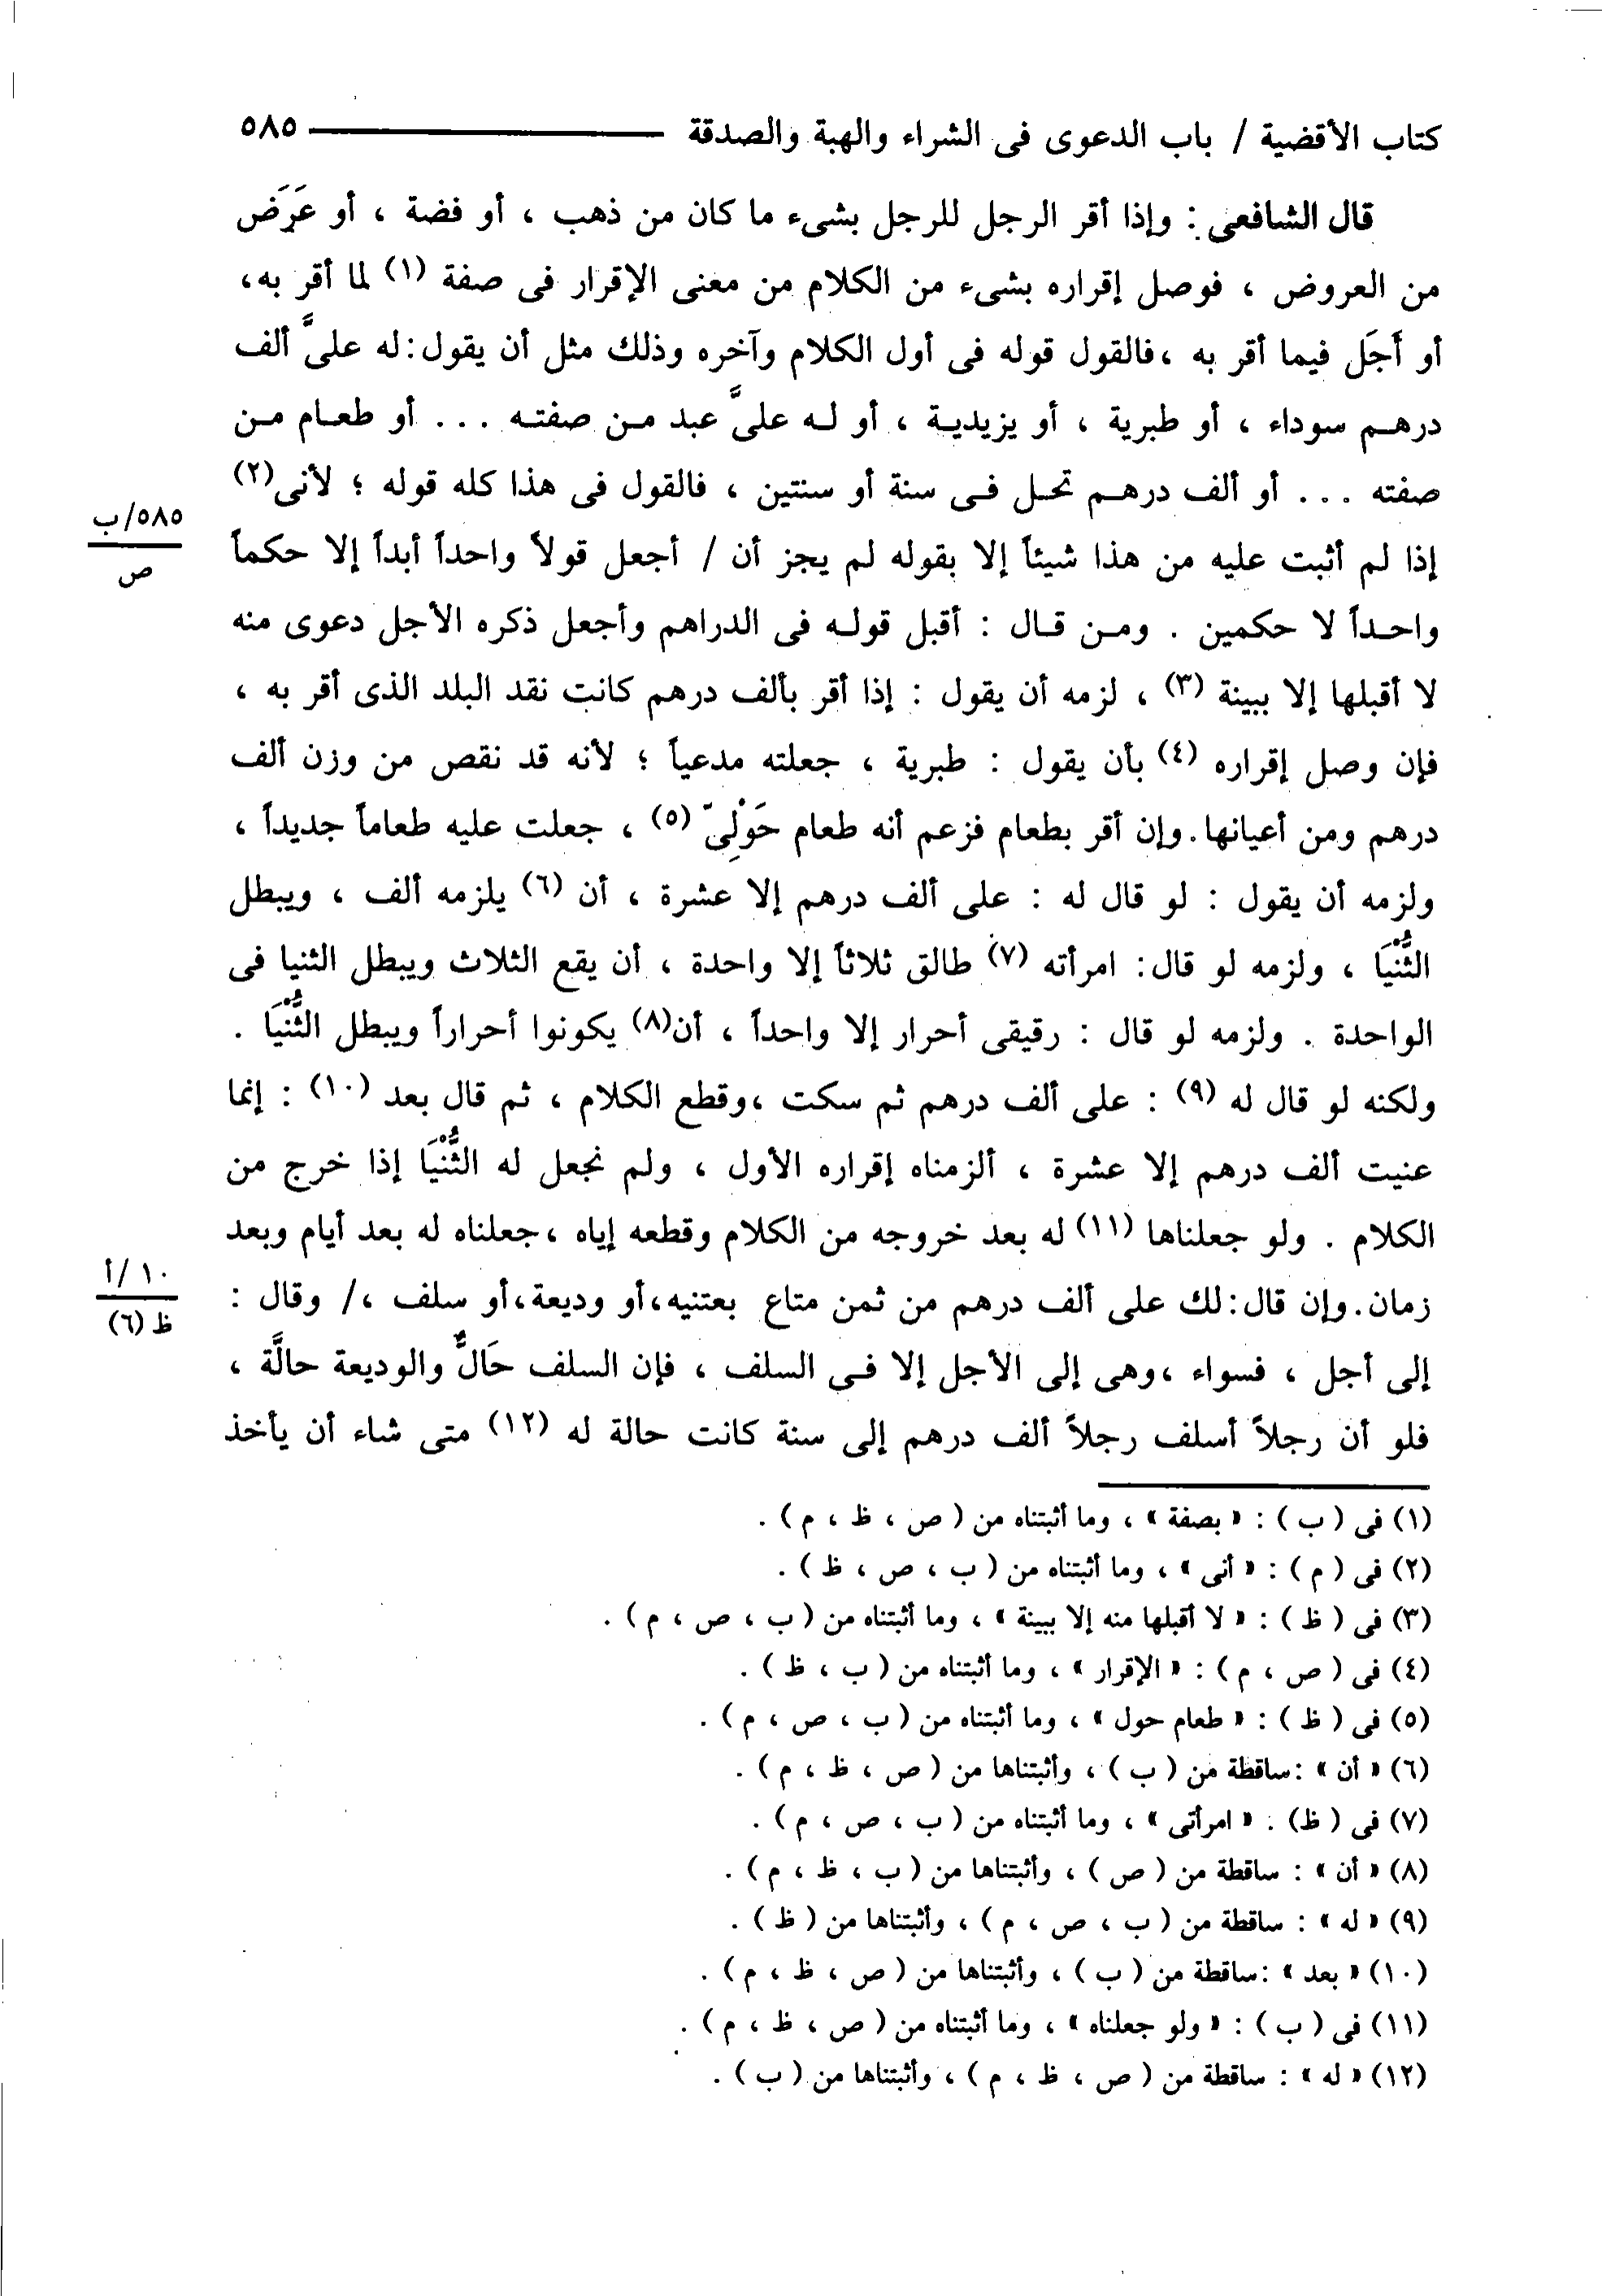 كتاب الأقضية / باب الدعوى فى الشراء والهبة والصدقة ٥٨٥
قال الشافعى : وإذا أقر الرجل للرجل بشىء ما كان من ذهب ، أو فضة ، أو عَرَض
من العروض ، فوصل إقراره بشىء من الكلام من معنى الإقرار فى صفة (١) لما أقر به،
أو أَجَل فيما أقر به ،فالقول قوله فى أول الكلام وآخره وذلك مثل أن يقول:له علىَّ ألف
درهـم سوداء ، أو طبرية ، أو يزيديـة ، أو لـه علىَّ عبد مـن صفتـه ... أو طعـام مـن
صفته ... أو ألف درهـم تحـل فـى سنة أو سنتين ، فالقول فى هذا كله قوله ؛ لأنى(٢)
إذا لم أثبت عليه من هذا شيئاً إلا بقوله لم يجز أن / أجعل قولاً واحداً أبداً إلا حكماً
٥٨٥/ب
ص
واحـداً لا حكمين . ومـن قـال : أقبل قولـه فى الدراهم وأجعل ذكره الأجل دعوى منه
لا أقبلها إلا ببينة (٣) ، لزمه أن يقول : إذا أقر بألف درهم كانت نقد البلد الذى أقر به ،
فإن وصل إقراره (٤) بأن يقول : طبرية ، جعلته مدعياً ؛ لأنه قد نقص من وزن ألف
درهم ومن أعيانها.وإن أقر بطعام فزعم أنه طعام حَوْلِىّ (٥) ، جعلت عليه طعاماً جديداً ،
ولزمه أن يقول : لو قال له : على ألف درهم إلا عشرة ، أن (٦) يلزمه ألف ، ويبطل
الثُّنْيَا ، ولزمه لو قال: امرأته (٧) طالق ثلاثاً إلا واحدة ، أن يقع الثلاث ويبطل الثنيا فى
الواحدة . ولزمه لو قال : رقيقى أحرار إلا واحداً ، أن(٨) يكونوا أحراراً ويبطل الثُّنْيَا .
ولكنه لو قال له (٩) : على ألف درهم ثم سكت ،وقطع الكلام ، ثم قال بعد (١٠) : إنما
عنيت ألف درهم إلا عشرة ، ألزمناه إقراره الأول ، ولم نجعل له الثُّنْيَا إذا خرج من
الكلام . ولو جعلناها (١١) له بعد خروجه من الكلام وقطعه إياه ،جعلناه له بعد أيام وبعد
زمان.وإن قال:لك على ألف درهم من ثمن متاع بعتنيه،أو وديعة،أو سلف ،/ وقال :
١٠/أ
ظ (٦)
إلى أجل ، فسواء ،وهى إلى الأجل إلا فـى السلف ، فإن السلف حَالٌّ والوديعة حالَّة ،
فلو أن رجلاً أسلف رجلاً ألف درهم إلى سنة كانت حالة له (١٢) متى شاء أن يأخذ
(١) فى ( ب ) : « بصفة » ، وما أثبتناه من ( ص ، ظ ، م ) .
(٢) فى ( م ) : « أنى » ، وما أثبتناه من ( ب ، ص ، ظ ) .
(٣) فى ( ظ ) : « لا أقبلها منه إلا ببينة » ، وما أثبتناه من ( ب ، ص ، م ) .
(٤) فى ( ص ، م ) : « الإقرار » ، وما أثبتناه من ( ب ، ظ ) .
(٥) فى ( ظ ) : « طعام حول » ، وما أثبتناه من ( ب ، ص ، م ) .
(٦) « أن » :ساقطة من ( ب ) ، وأثبتناها من ( ص ، ظ ، م ) .
(٧) فى ( ظ) : « امرأتى » ، وما أثبتناه من ( ب ، ص ، م ) .
(٨) « أن » : ساقطة من ( ص ) ، وأثبتناها من ( ب ، ظ ، م ) .
(٩) « له » : ساقطة من ( ب ، ص ، م ) ، وأثبتناها من ( ظ ) .
(١٠) « بعد » :ساقطة من ( ب ) ، وأثبتناها من ( ص ، ظ ، م ) .
(١١) فى ( ب ) : « ولو جعلناه » ، وما أثبتناه من ( ص ، ظ ، م ) .
(١٢) « له » : ساقطة من ( ص ، ظ ، م ) ، وأثبتناها من ( ب ) .